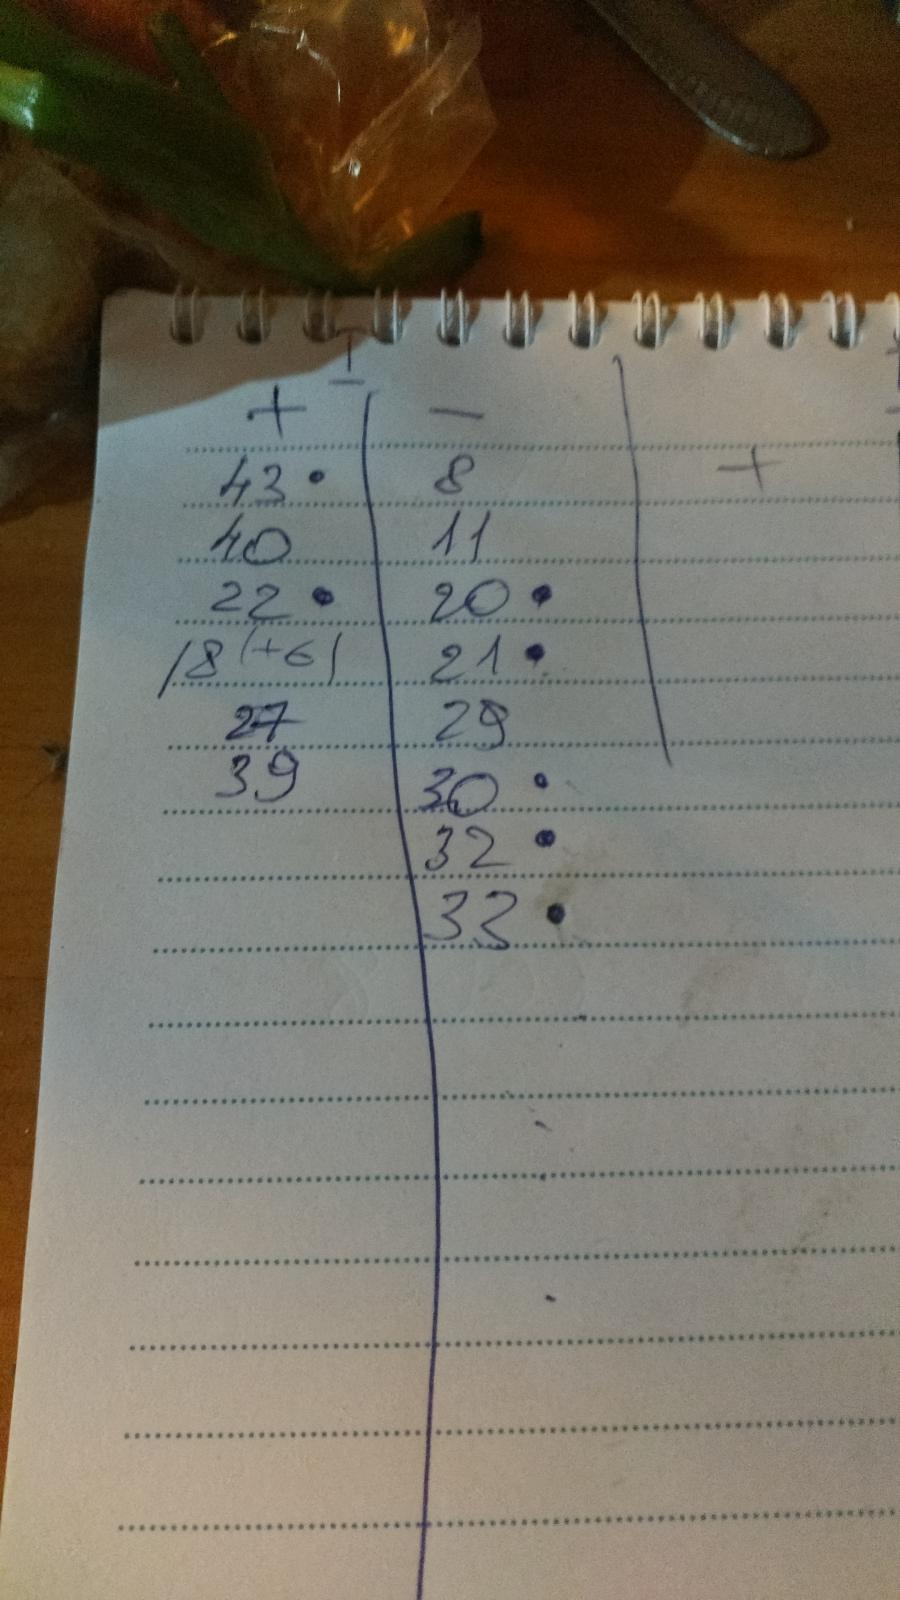 ±
+ − +
43 • 8
40 11
22 • 20 •
18 (+6) 21 •
27 29
39 30 •
32 •
33 •